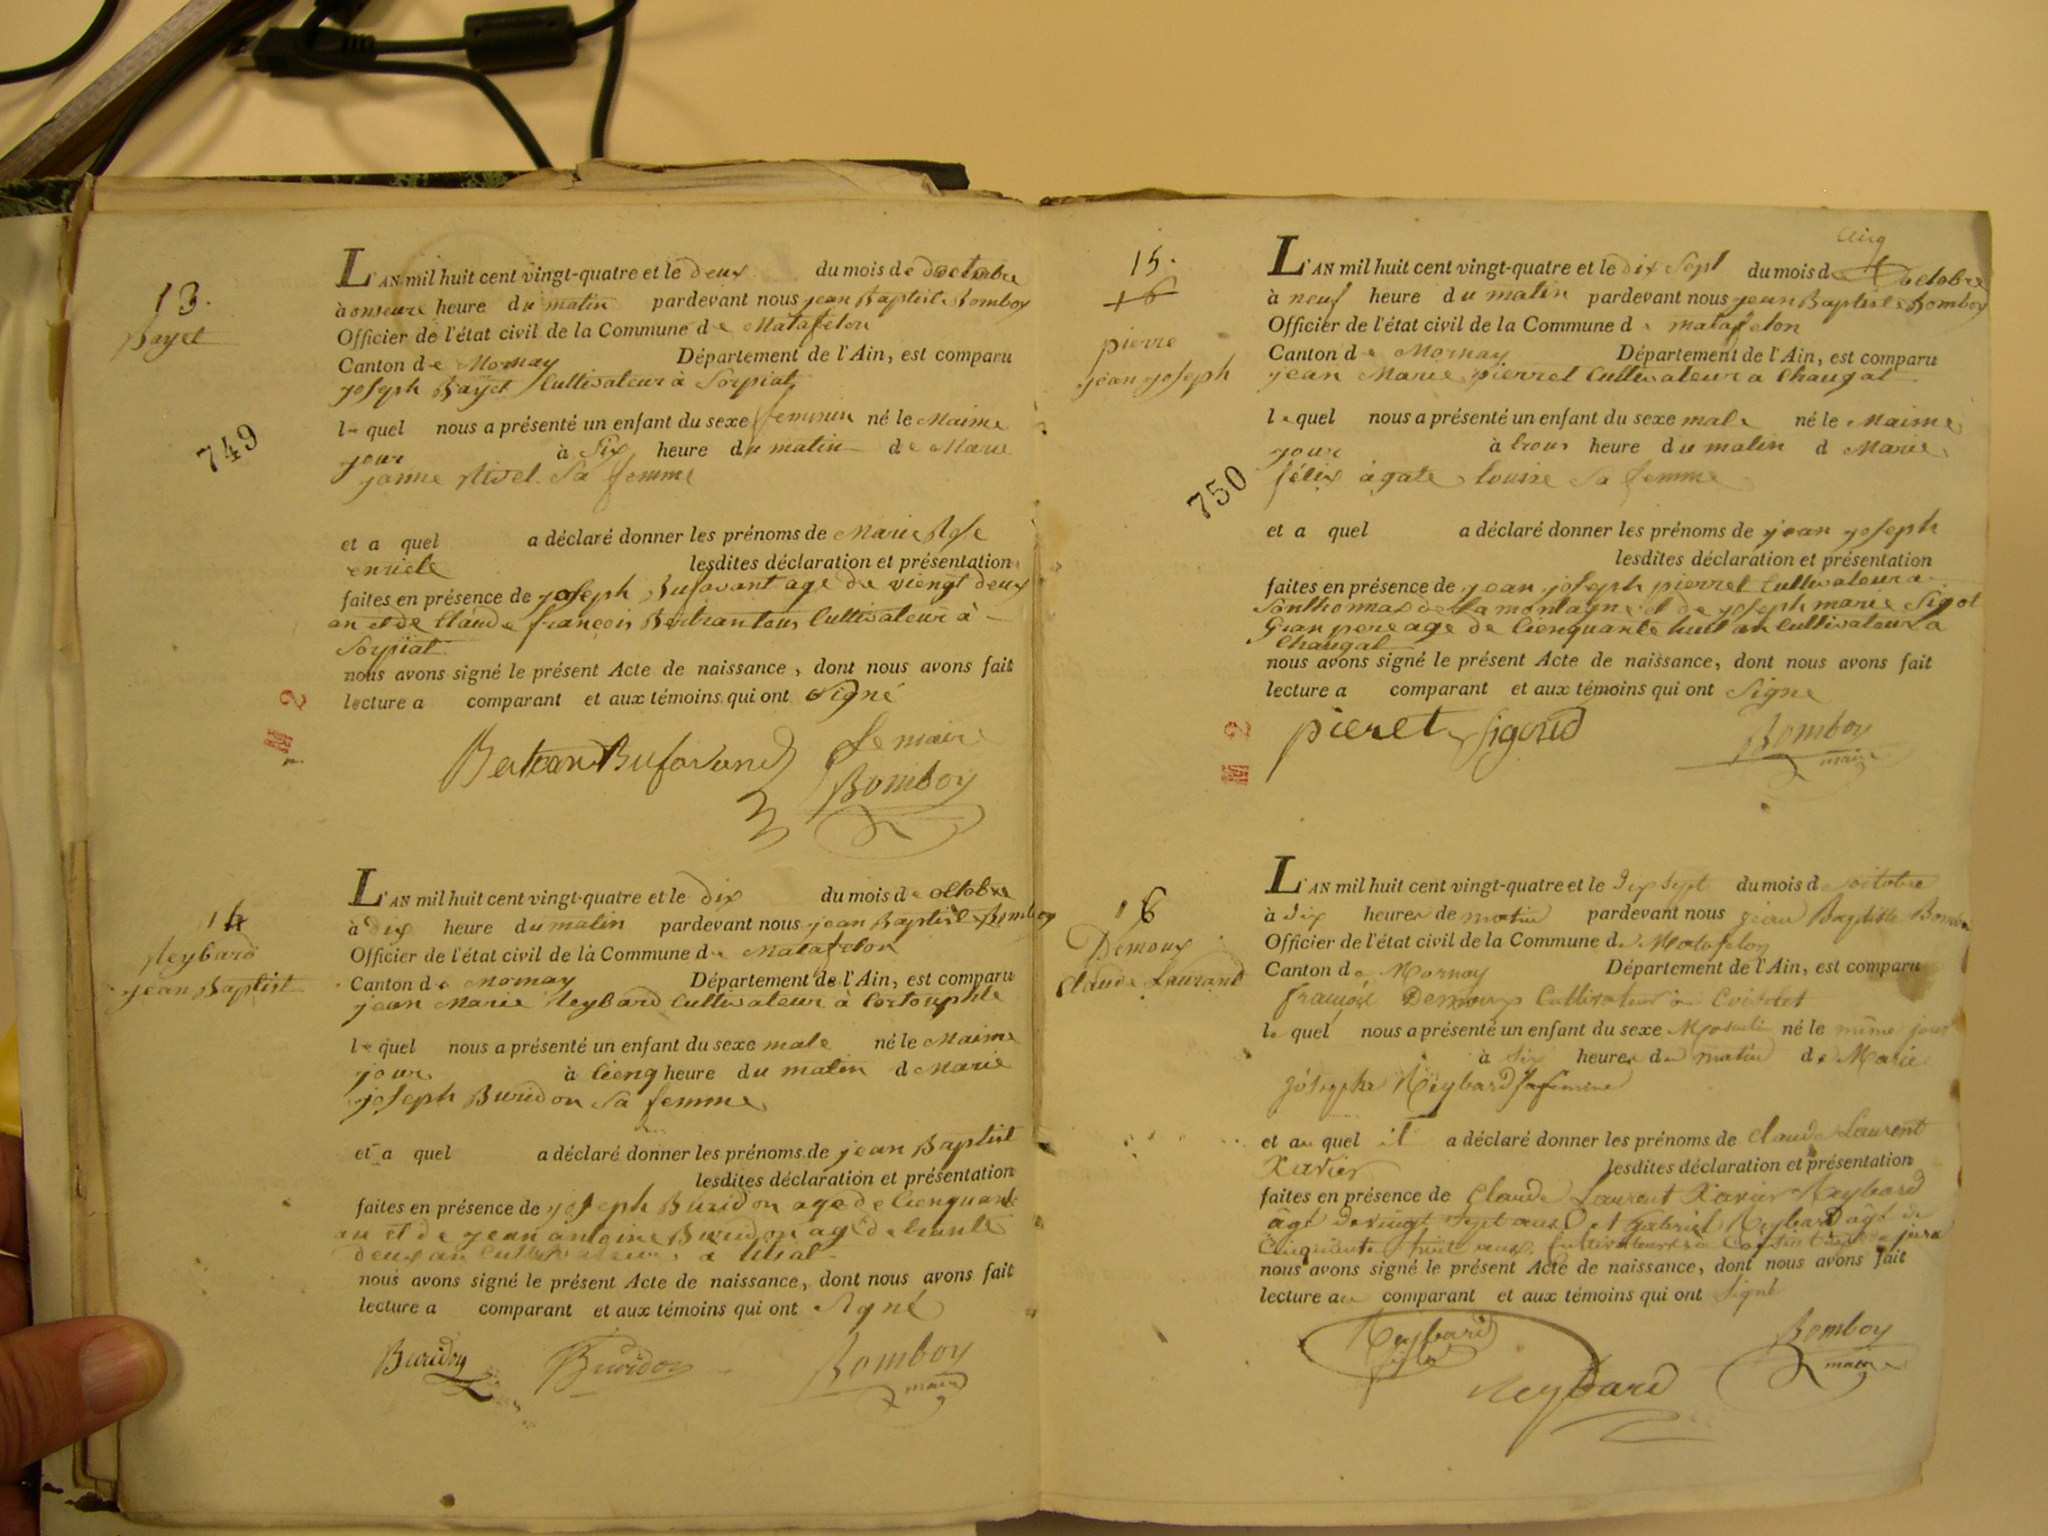 13.
Bayet
749
L'AN mil huit cent vingt-quatre et le deux du mois de doctobre
à onseure heure du matin pardevant nous jean Baptist Bomboy
Officier de l'état civil de la Commune de Matafelon
Canton de Mornay Département de l'Ain, est comparu
joseph Bayet Cultivateur à Sorpiat
le quel nous a présenté un enfant du sexe feminin né le Maime
jour à Six heure du matin de Marie
janne Nivel Sa femme
et a quel a déclaré donner les prénoms de Marie Rose
lesdites déclaration et présentation
faites en présence de joseph Bufavant age de viengt deux
an et de Claude françois Cultivateur à
Sorpiat
nous avons signé le présent Acte de naissance, dont nous avons fait
lecture a comparant et aux témoins qui ont Signé
Bertean Bufavand Le maire
Bomboy
14
Reybard
jean Baptist
L'AN mil huit cent vingt-quatre et le dix du mois de octobre
à dix heure du matin pardevant nous jean Baptist Bomboy
Officier de l'état civil de la Commune de Matafelon
Canton de Mornay Département de l'Ain, est comparu
jean Marie Reybard Cultivateur à
le quel nous a présenté un enfant du sexe male né le Maime
jour à Cienq heure du matin d Marie
joseph Buridon Sa femme
et a quel a déclaré donner les prénoms de jean Baptist
lesdites déclaration et présentation
faites en présence de joseph Buridon age de Cienquante
an et de jean antoine Buridon agé de trante
deux an Cultivateur a
nous avons signé le présent Acte de naissance, dont nous avons fait
lecture a comparant et aux témoins qui ont Signé
Buridon Buridon Bomboy
maire
15.
16
pierre
jean joseph
750
L'AN mil huit cent vingt-quatre et le dix Sept du mois d octobre
à neuf heure du matin pardevant nous jean Baptiste Bomboy
Officier de l'état civil de la Commune de matafelon
Canton de Mornay Département de l'Ain, est comparu
jean Marie pierret Cultivateur a Chaugat
le quel nous a présenté un enfant du sexe male né le Maime
jour à trois heure du matin d Marie
félix àgate louise Sa femme
et a quel a déclaré donner les prénoms de jean joseph
lesdites déclaration et présentation
faites en présence de jean joseph pierret Cultivateur a
de la montagne et de joseph marie Sigot
Gran pere age de Cienquante huit an Cultivateur a
Chaugat
nous avons signé le présent Acte de naissance, dont nous avons fait
lecture a comparant et aux témoins qui ont Signe
pieret Sigoud Bomboy
maire
16
Démoux
Claude Laurand
L'AN mil huit cent vingt-quatre et le Dix Sept du mois d octobre
à Dix heures de matin pardevant nous jean Baptiste Bomboy
Officier de l'état civil de la Commune de Matafelon
Canton de Mornay Département de l'Ain, est comparu
françois Demoux Cultivateur à
le quel nous a présenté un enfant du sexe Masculin né le même jour
à Six heures du matin de Marie
Josephe Reybard Sa femme
et au quel il a déclaré donner les prénoms de Claude Laurent
Xavier lesdites déclaration et présentation
faites en présence de Claude Laurent Xavier Reybard
âgé de vingt Sept ans et Gabriel Reybard âgé de
Cinquante huit ans, Cultivateurs à
nous avons signé le présent Acte de naissance, dont nous avons fait
lecture au comparant et aux témoins qui ont Signé
Reybard Bomboy
fils maire
Reybard